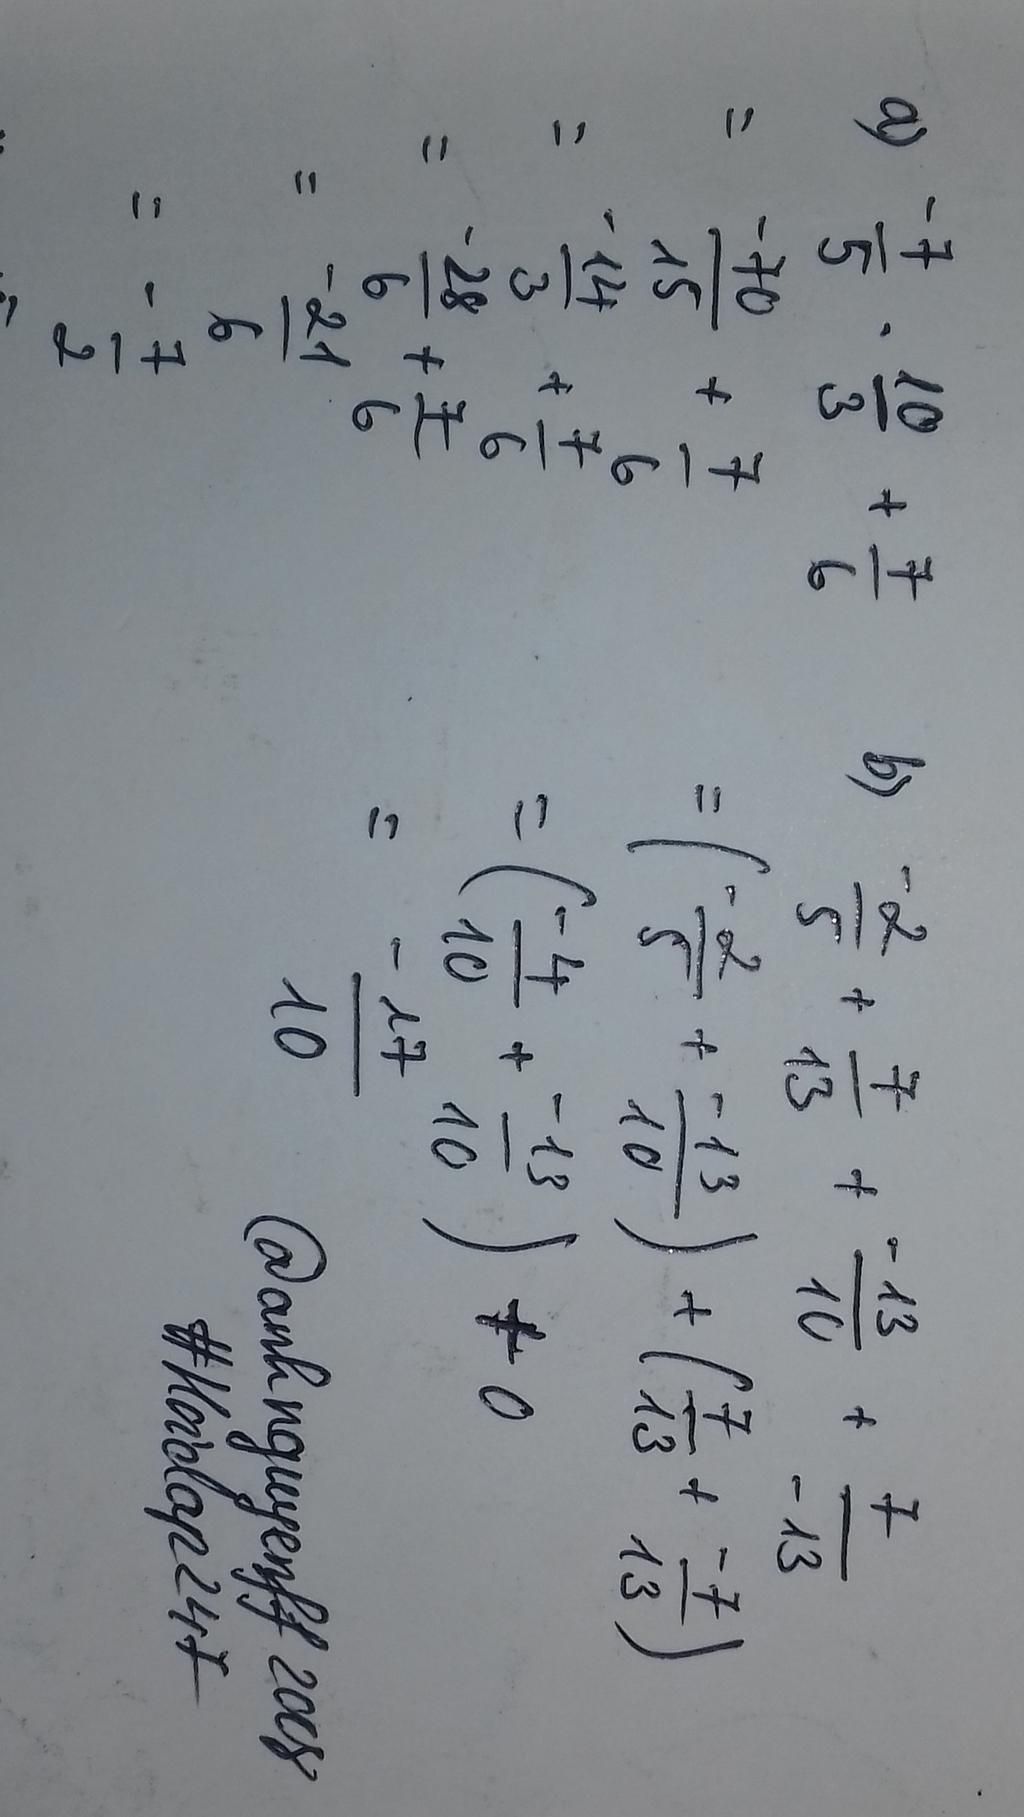 a) -7/5 . 10/3 + 7/6
= -70/15 + 7/6
= -14/3 + 7/6
= -28/6 + 7/6
= -21/6
= -7/2
b) -2/5 + 7/13 + -13/10 + 7/-13
= (-2/5 + -13/10) + (7/13 + -7/13)
= (-4/10 + -13/10) + 0
= -17/10
@anhnguyenff2008
#Hoidap247